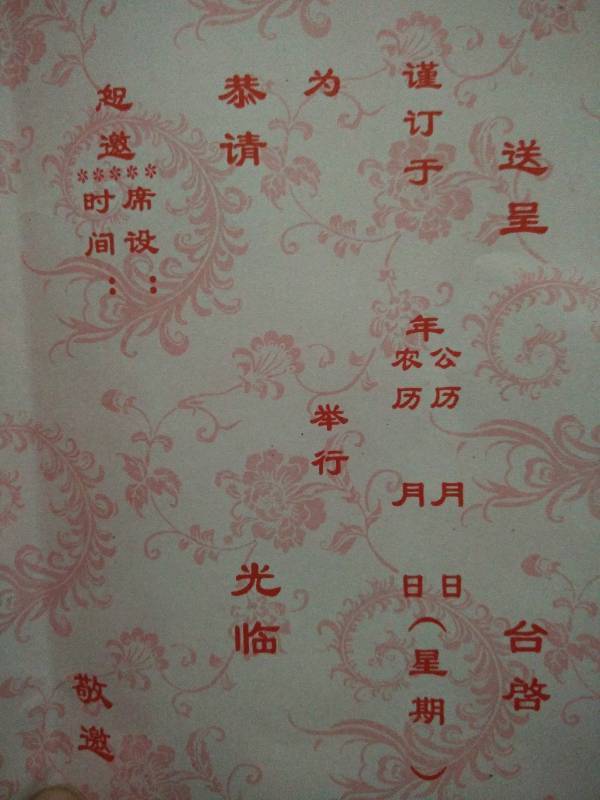 送呈 台启
谨订于 年
公历 月 日
农历 月 日
（星期 ）
为 举行
恭请 光临
恕邀
*****
席设：
时间：
敬邀